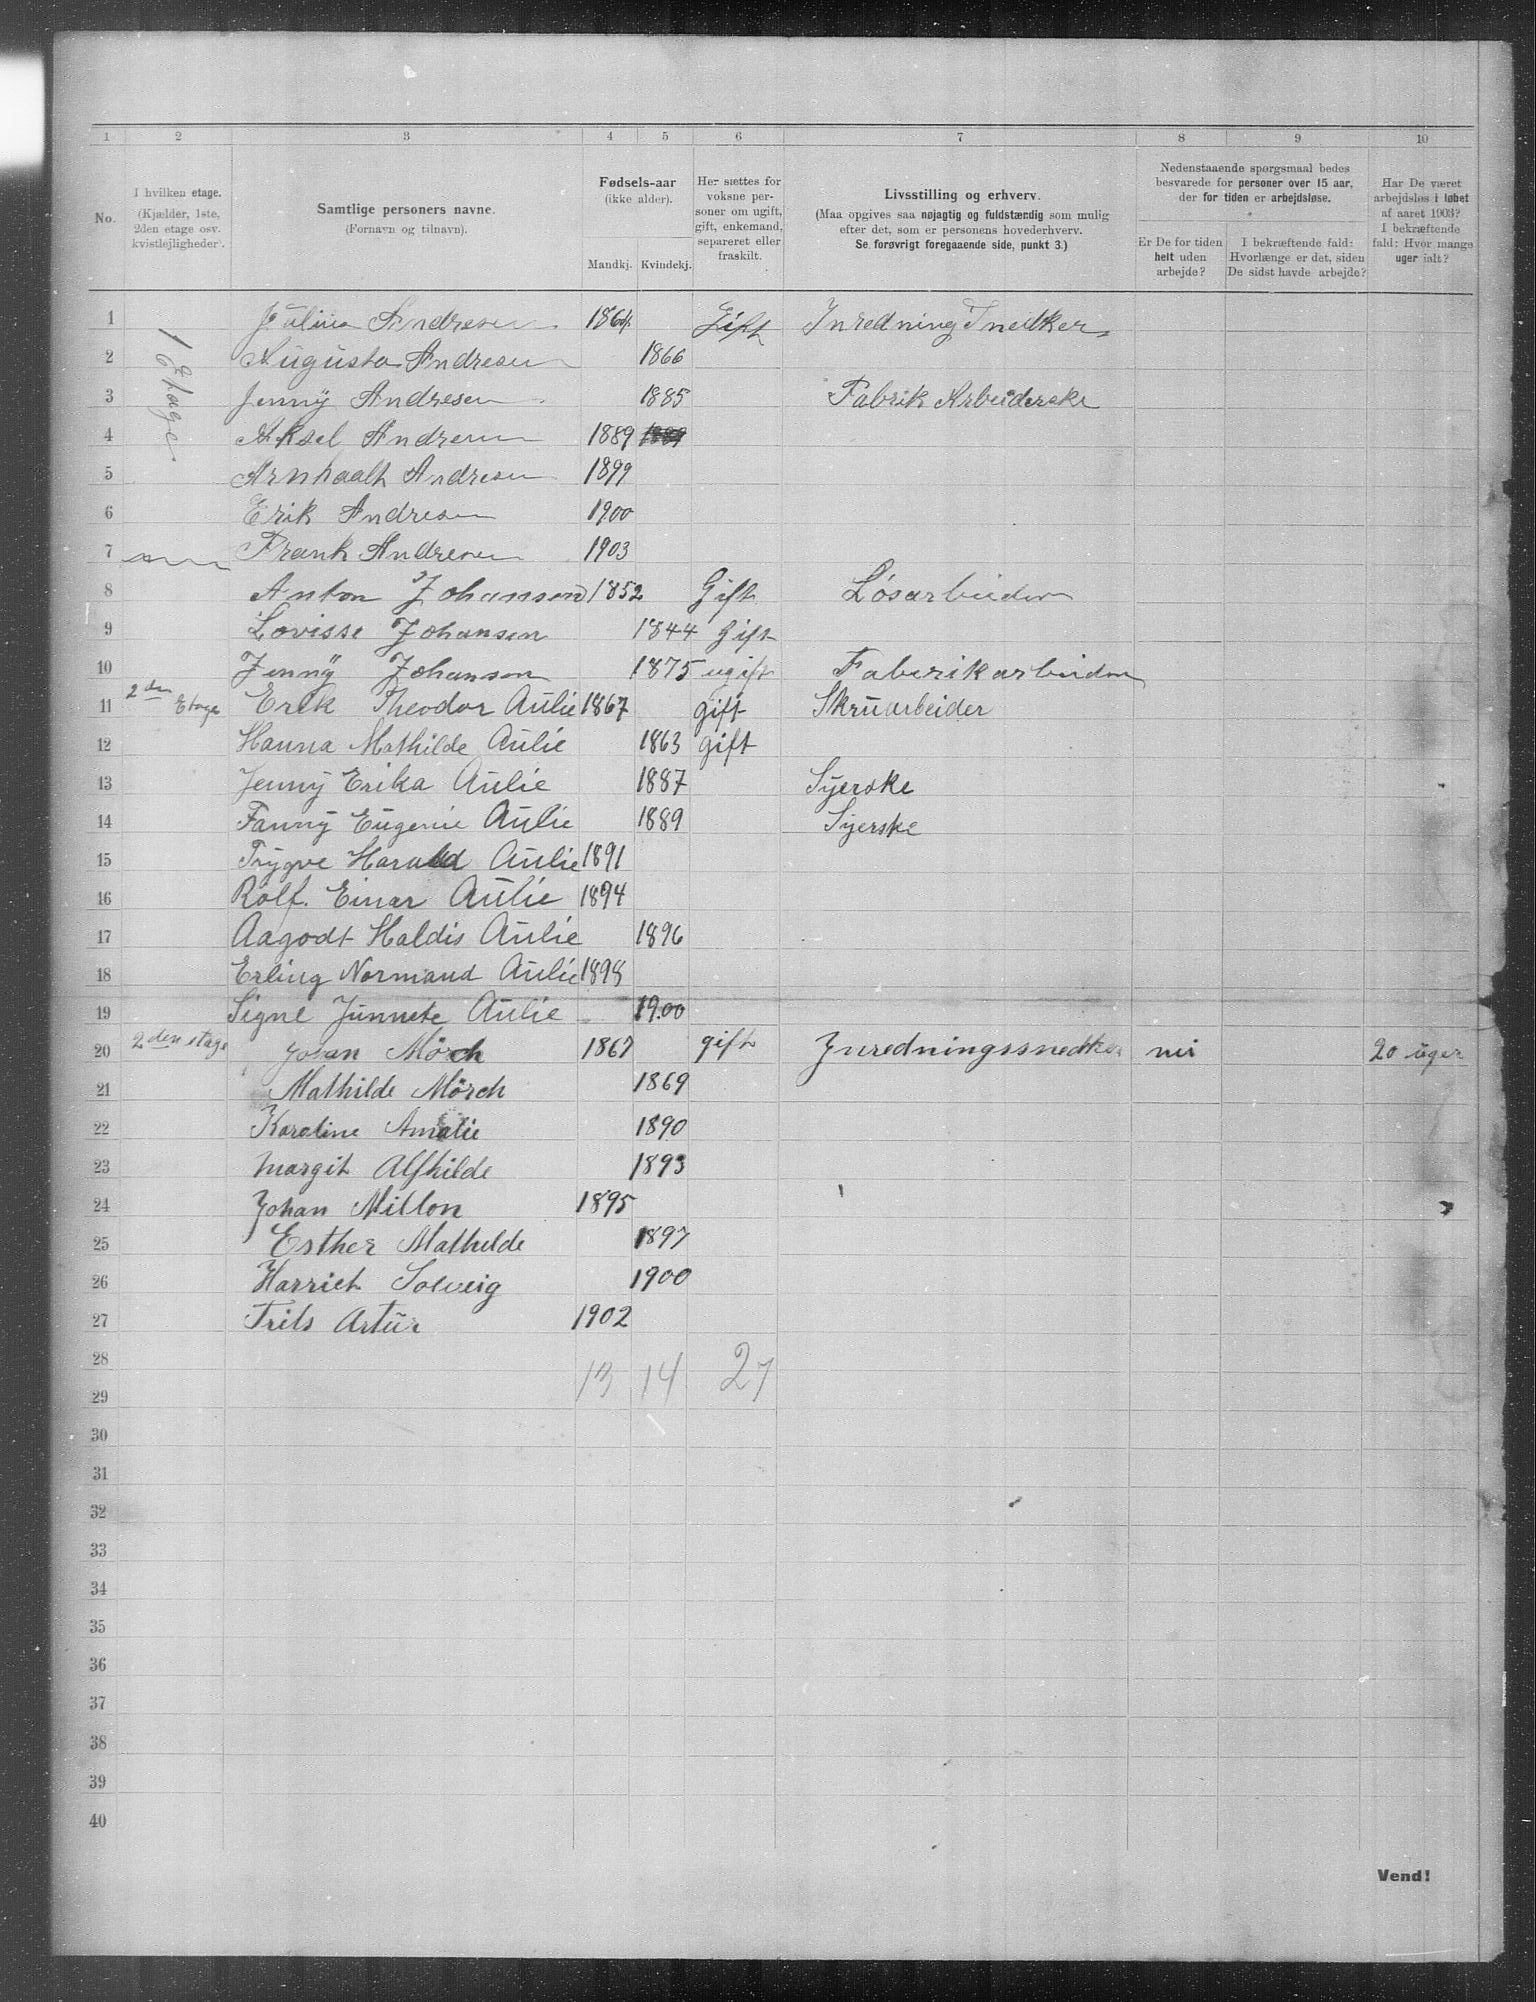 1 2 3 4 5 6 7 8 9 10
No.
I hvilken etage.
(Kjælder, 1ste,
2den etage osv.
kvistlejligheder).
Samtlige personers navne.
(Fornavn og tilnavn).
Fødsels-aar
(ikke alder).
Mandkj. Kvindekj.
Her sættes for
voksne per-
soner om ugift,
gift, enkemand,
separeret eller
fraskilt.
Livsstilling og erhverv.
(Maa opgives saa nøjagtig og fuldstændig som mulig
efter det, som er personens hovederhverv.
Se forøvrigt foregaaende side, punkt 3.)
Nedenstaaende spørgsmaal bedes
besvarede for personer over 15 aar,
der for tiden er arbejdsløse.
Er De for tiden
helt uden
arbejde?
I bekræftende fald:
Hvorlænge er det, siden
De sidst havde arbejde?
Har De været
arbejdsløs i løbet
af aaret 1903?
I bekræftende
fald: Hvor mange
uger ialt?
1 1 Etage Julius Andresen 1864 Gift Inredning Snedker
2 Augusta Andresen 1866
3 Jenny Andresen 1885 Fabrik Arbeiderske
4 Aksel Andresen 1889 1889
5 Andresen 1899
6 Erik Andresen 1900
7 Frank Andresen 1903
8 Anton Johansen 1852 Gift Løsarbeider
9 Lovisse Johansen 1844 Gift
10 Jenny Johansen 1875 ugift Faberikarbeider
11 2den Etage Erik Theodor Aulie 1867 gift Skruarbeider
12 Hanna Mathilde Aulie 1863 gift
13 Jenny Erika Aulie 1887 Syerske
14 Fanny Eugenie Aulie 1889 Syerske
15 Trygve Harald Aulie 1891
16 Rolf. Einar Aulie 1894
17 Aagodt Haldis Aulie 1896
18 Erling Normand Aulie 1898
19 Signe Junnete Aulie 1900
20 2den etage Johan Mörch 1867 gift Inredningssnedker nei 20 uger
21 Mathilde Mörch 1869
22 Karoline Amalie 1890
23 Margit Alfhilde 1893
24 Johan Millon 1895
25 Esther Mathilde 1897
26 Harriet Solveig 1900
27 Frits Artur 1902
28
29 13 14 27
30
31
32
33
34
35
36
37
38
39
40
Vend!